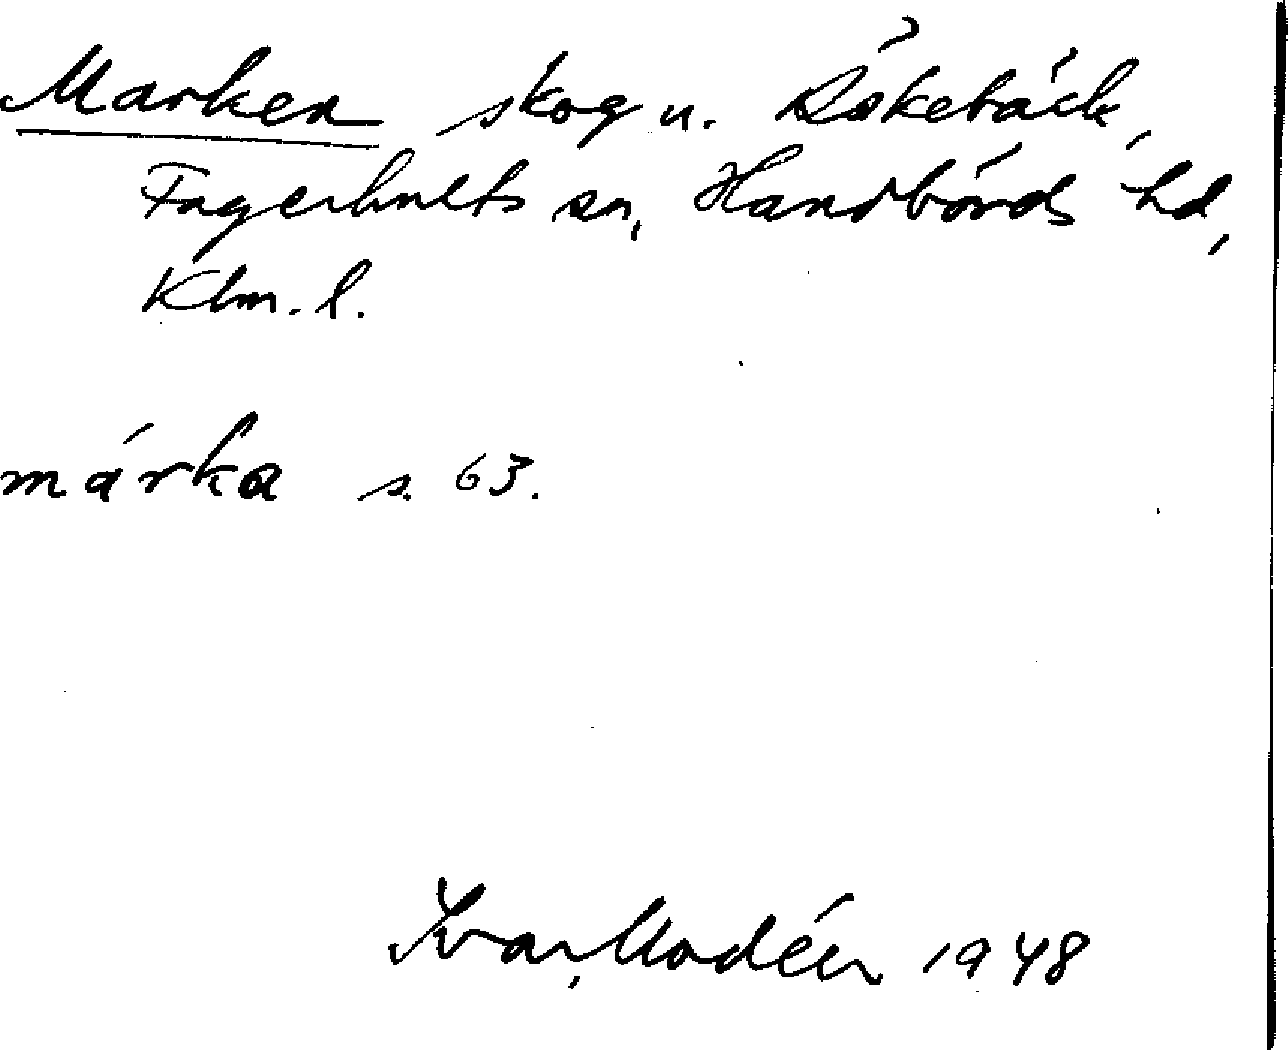 Marken skog n. Råkebäck,
Fagerhults sn, Handbörds hd,
Klm. l.
márka s. 63.
Ivar Modéer 1948